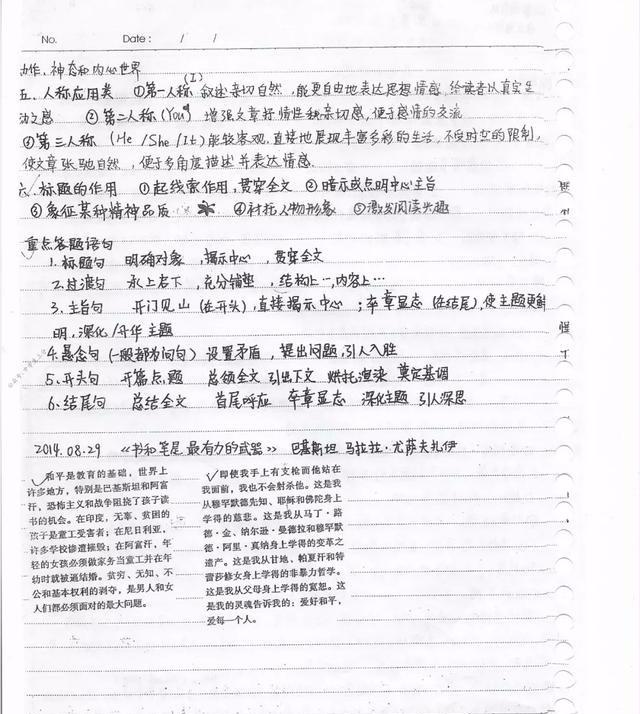 No. Date: / /
动作、神态和内心世界
五、人称应用类 ①第一人称(I) 叙述亲切自然,能更自由地表达思想情感,给读者以真实生
动之感 ②第二人称(You) 增强文章抒情性和亲切感,便于感情的交流
③第三人称(He/She/It)能较客观,直接地展现丰富多彩的生活,不受时空的限制,
使文章张驰自然,便于多角度描述并表达情感.
六、标题的作用 ①起线索作用,贯穿全文 ②暗示或点明中心主旨
③象征某种精神品质 ④衬托人物形象 ⑤激发阅读兴趣
重点答题语句
1.标题句 明确对象,揭示中心,贯穿全文
2.过渡句 承上启下,充分铺垫,结构上…,内容上…
3.主旨句 开门见山(在开头),直接揭示中心;卒章显志(在结尾),使主题更鲜
明,深化/升华主题
4.悬念句(一般都为问句) 设置矛盾,提出问题,引人入胜
5.开头句 开篇点题 总领全文 引出下文 烘托渲染 奠定基调
6.结尾句 总结全文 首尾呼应 卒章显志 深化主题 引人深思
2014.08.29 《书和笔是最有力的武器》 巴基斯坦 马拉拉·尤萨夫扎伊
和平是教育的基础,世界上
许多地方,特别是巴基斯坦和阿富
汗,恐怖主义和战争阻挠了孩子读
书的机会。在印度,无辜、贫困的
孩子是童工受害者;在尼日利亚,
许多学校惨遭摧毁;在阿富汗,年
轻的女孩必须做家务当童工并在年
幼时就被逼结婚。贫穷、无知、不
公和基本权利的剥夺,是男人和女
人们都必须面对的最大问题。
即使我手上有支枪而他站在
我面前,我也不会射杀他。这是我
从穆罕默德先知、耶稣和佛陀身上
学得的慈悲。这是我从马丁·路
德·金、纳尔逊·曼德拉和穆罕默
德·阿里·真纳身上学得的变革之
遗产。这是我从甘地、帕夏汗和特
蕾莎修女身上学得的非暴力哲学。
这是我从父母身上学得的宽恕。这
是我的灵魂告诉我的:爱好和平,
爱每一个人。